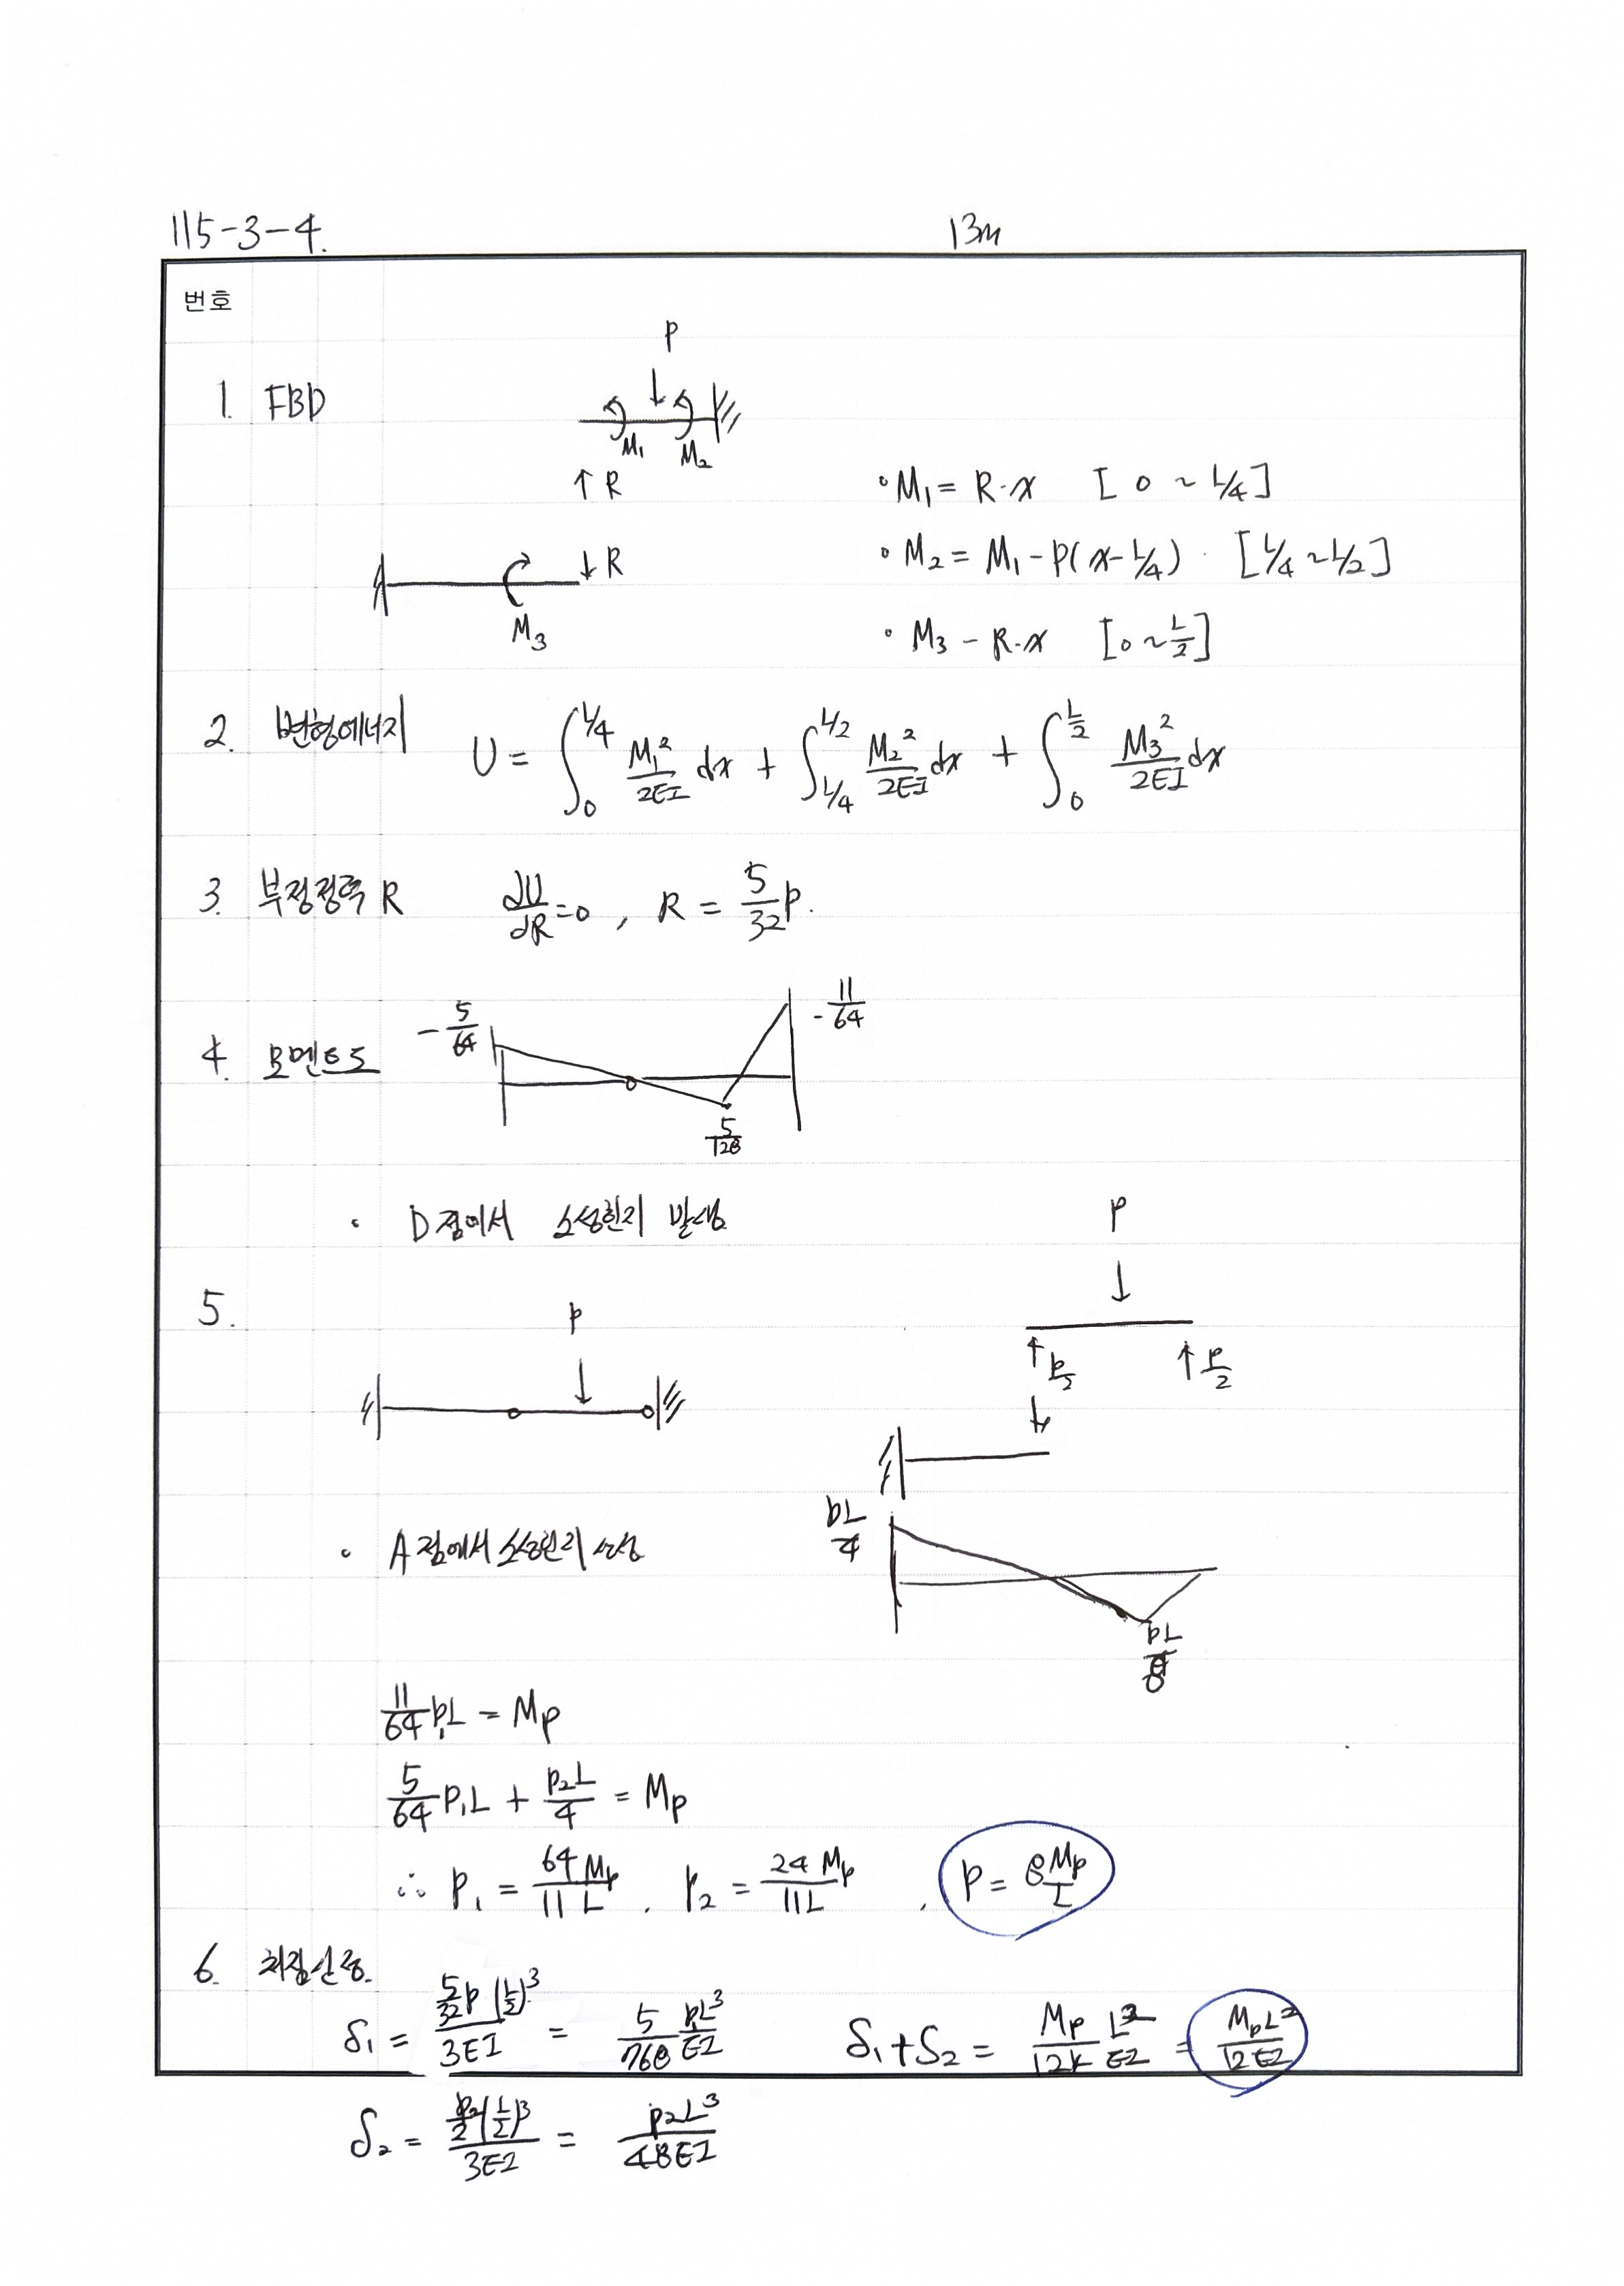 115-3-4.
13m
번호
P
1. FBD
M₁ M₂
↑ R
• M₁ = R·x [ 0 ~ L/4 ]
• M₂ = M₁ - P(x - L/4) · [ L/4 ~ L/2 ]
↓ R
M₃
• M₃ - R·x [ 0 ~ L/2 ]
2. 변형에너지 U = ∫₀^(L/4) M₁²/2EI dx + ∫_(L/4)^(L/2) M₂²/2EI dx + ∫₀^(L/2) M₃²/2EI dx
3. 부정정력 R dU/dR = 0 , R = 5/32 P.
- 5/64
- 11/64
4. 모멘트도
5/128
• D점에서 소성힌지 발생
P
5.
P
↑ P/2 ↑ P/2
PL/4
• A점에서 소성힌지
PL/8
11/64 P₁L = Mp
5/64 P₁L + P₂L/4 = Mp
∴ P₁ = 64 Mp/11 L . P₂ = 24 Mp/11L , P = 8Mp/L
6. 처짐산정.
δ₁ = 5/32 P (L/2)³/3EI = 5/768 P₁L³/EI
δ₁ + δ₂ = Mp/12 L²/EI = MpL²/12EI
δ₂ = P₂/2 (L/2)³/3EI = P₂L³/48EI